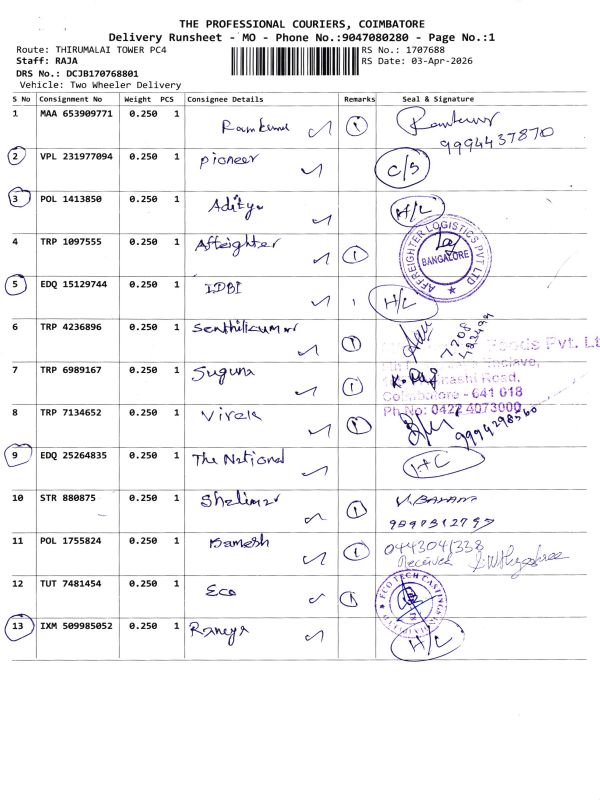 THE PROFESSIONAL COURIERS, COIMBATORE
Delivery Runsheet - MO - Phone No.:9047080280 - Page No.:1
Route: THIRUMALAI TOWER PC4
RS No.: 1707688
Staff: RAJA
RS Date: 03-Apr-2026
DRS No.: DCJB170768801
Vehicle: Two Wheeler Delivery
S No Consignment No Weight PCS Consignee Details Remarks Seal & Signature
1 MAA 653909771 0.250 1 Ramkumar 1
9994437870
2 VPL 231977094 0.250 1 pioneer C/S
3 POL 1413850 0.250 1 Aditya H/L
4 TRP 1097555 0.250 1 Affeighter 1
AFFREIGHTER LOGISTICS PVT LTD
BANGALORE
5 EDQ 15129744 0.250 1 IDBI 1 H/L
6 TRP 4236896 0.250 1 Senthilkumar 1
oods Pvt. Lt
7 TRP 6989167 0.250 1 Suguna 1 K. Raj
nashi Road,
Coimbatore - 641 018
Ph No: 0422 4073000
8 TRP 7134652 0.250 1 Virela 1
9 EDQ 25264835 0.250 1 The National H+C
10 STR 880875 0.250 1 Shelimar 1
11 POL 1755824 0.250 1 Ramesh 1 0443041338
Received
12 TUT 7481454 0.250 1 Eco 1
ECO TECH CASTINGS
13 IXM 509985052 0.250 1 Raneya H/L